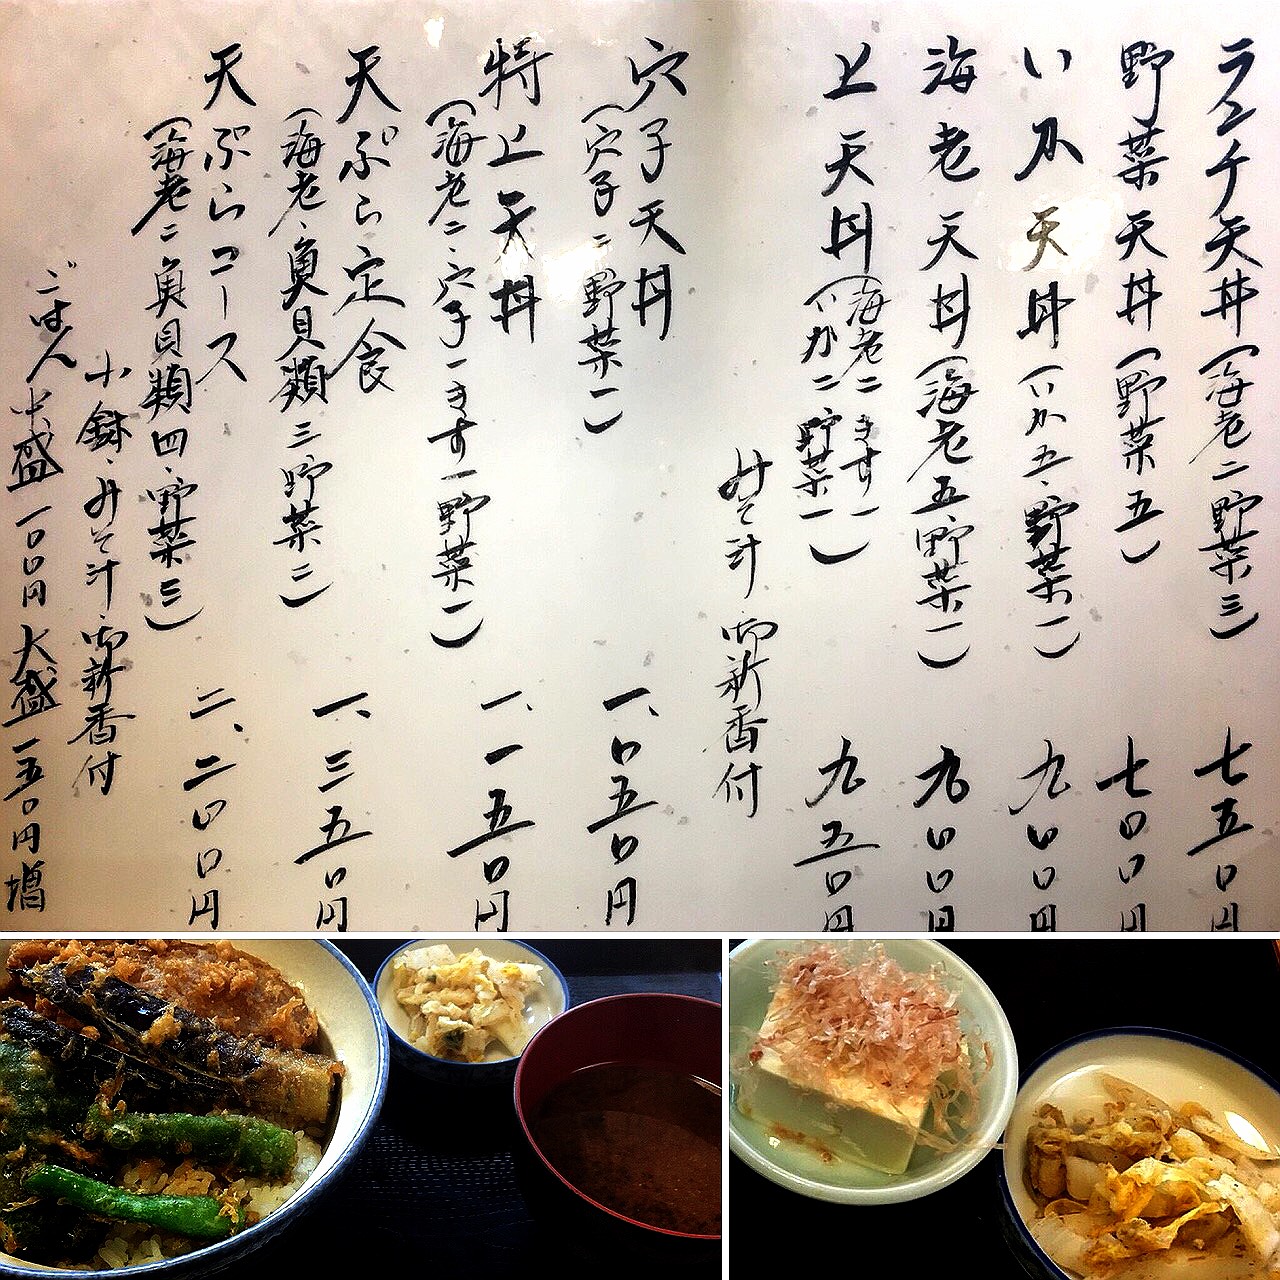 ランチ天丼(海老二野菜三)七五〇円
野菜天丼(野菜五)七〇〇円
いか天丼(いか五、野菜一)九〇〇円
海老天丼(海老五、野菜一)九〇〇円
上天丼(海老二きす一
いか二野菜一)九五〇円
みそ汁御新香付
穴子天丼
(穴子二野菜一)一、〇五〇円
特上天丼
(海老二、穴子一きす一野菜一)一、一五〇円
天ぷら定食
(海老、魚貝類三野菜二)一、三五〇円
天ぷらコース
(海老二魚貝類四、野菜三)二、二〇〇円
小鉢、みそ汁、御新香付
ごはん中盛一〇〇円大盛一五〇円増